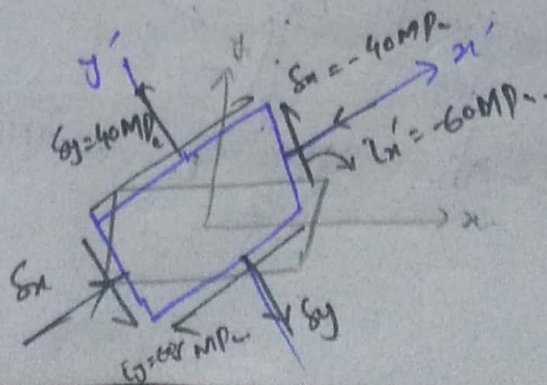 y'
y
δx = -40MPa
x'
δy=40MPa
τx' = -60MPa
x
δx
δy